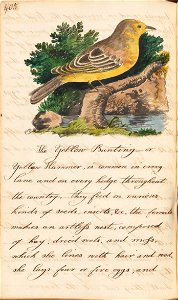 405
The Yellow Bunting, or
Yellow Hammer, is common in every
lane and on every hedge throughout
the country. They feed on various
kinds of seeds, insects, &c. the female
makes an artless nest, composed
of hay, dried roots, and moss,
which she lines with hair and wool,
she lays four or five eggs, and